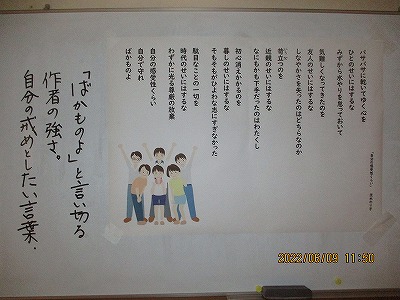 「自分の感受性くらい」 茨木のり子
パサパサに乾いてゆく心を
ひとのせいにはするな
みずから水やりを怠っておいて
気難しくなってきたのを
友人のせいにはするな
しなやかさを失ったのはどちらなのか
苛立つのを
近親のせいにはするな
なにもかも下手だったのはわたくし
初心消えかかるのを
暮しのせいにはするな
そもそもがひよわな志にすぎなかった
駄目なことの一切を
時代のせいにはするな
わずかに光る尊厳の放棄
自分の感受性くらい
自分で守れ
ばかものよ
「ばかものよ」と言い切る
作者の強さ。
自分の戒めとしたい言葉.
2022/06/09 11:50